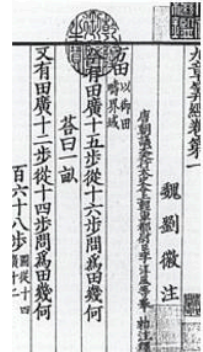 九章算經卷第一
魏劉徽注
唐朝議大夫行太史令上輕車都尉臣李淳風等奉 勑注釋
方田以御田疇界域
今有田廣十五步從十六步問爲田幾何
荅曰一畝
又有田廣十二步從十四步問爲田幾何
百六十八步圖從十四廣十二